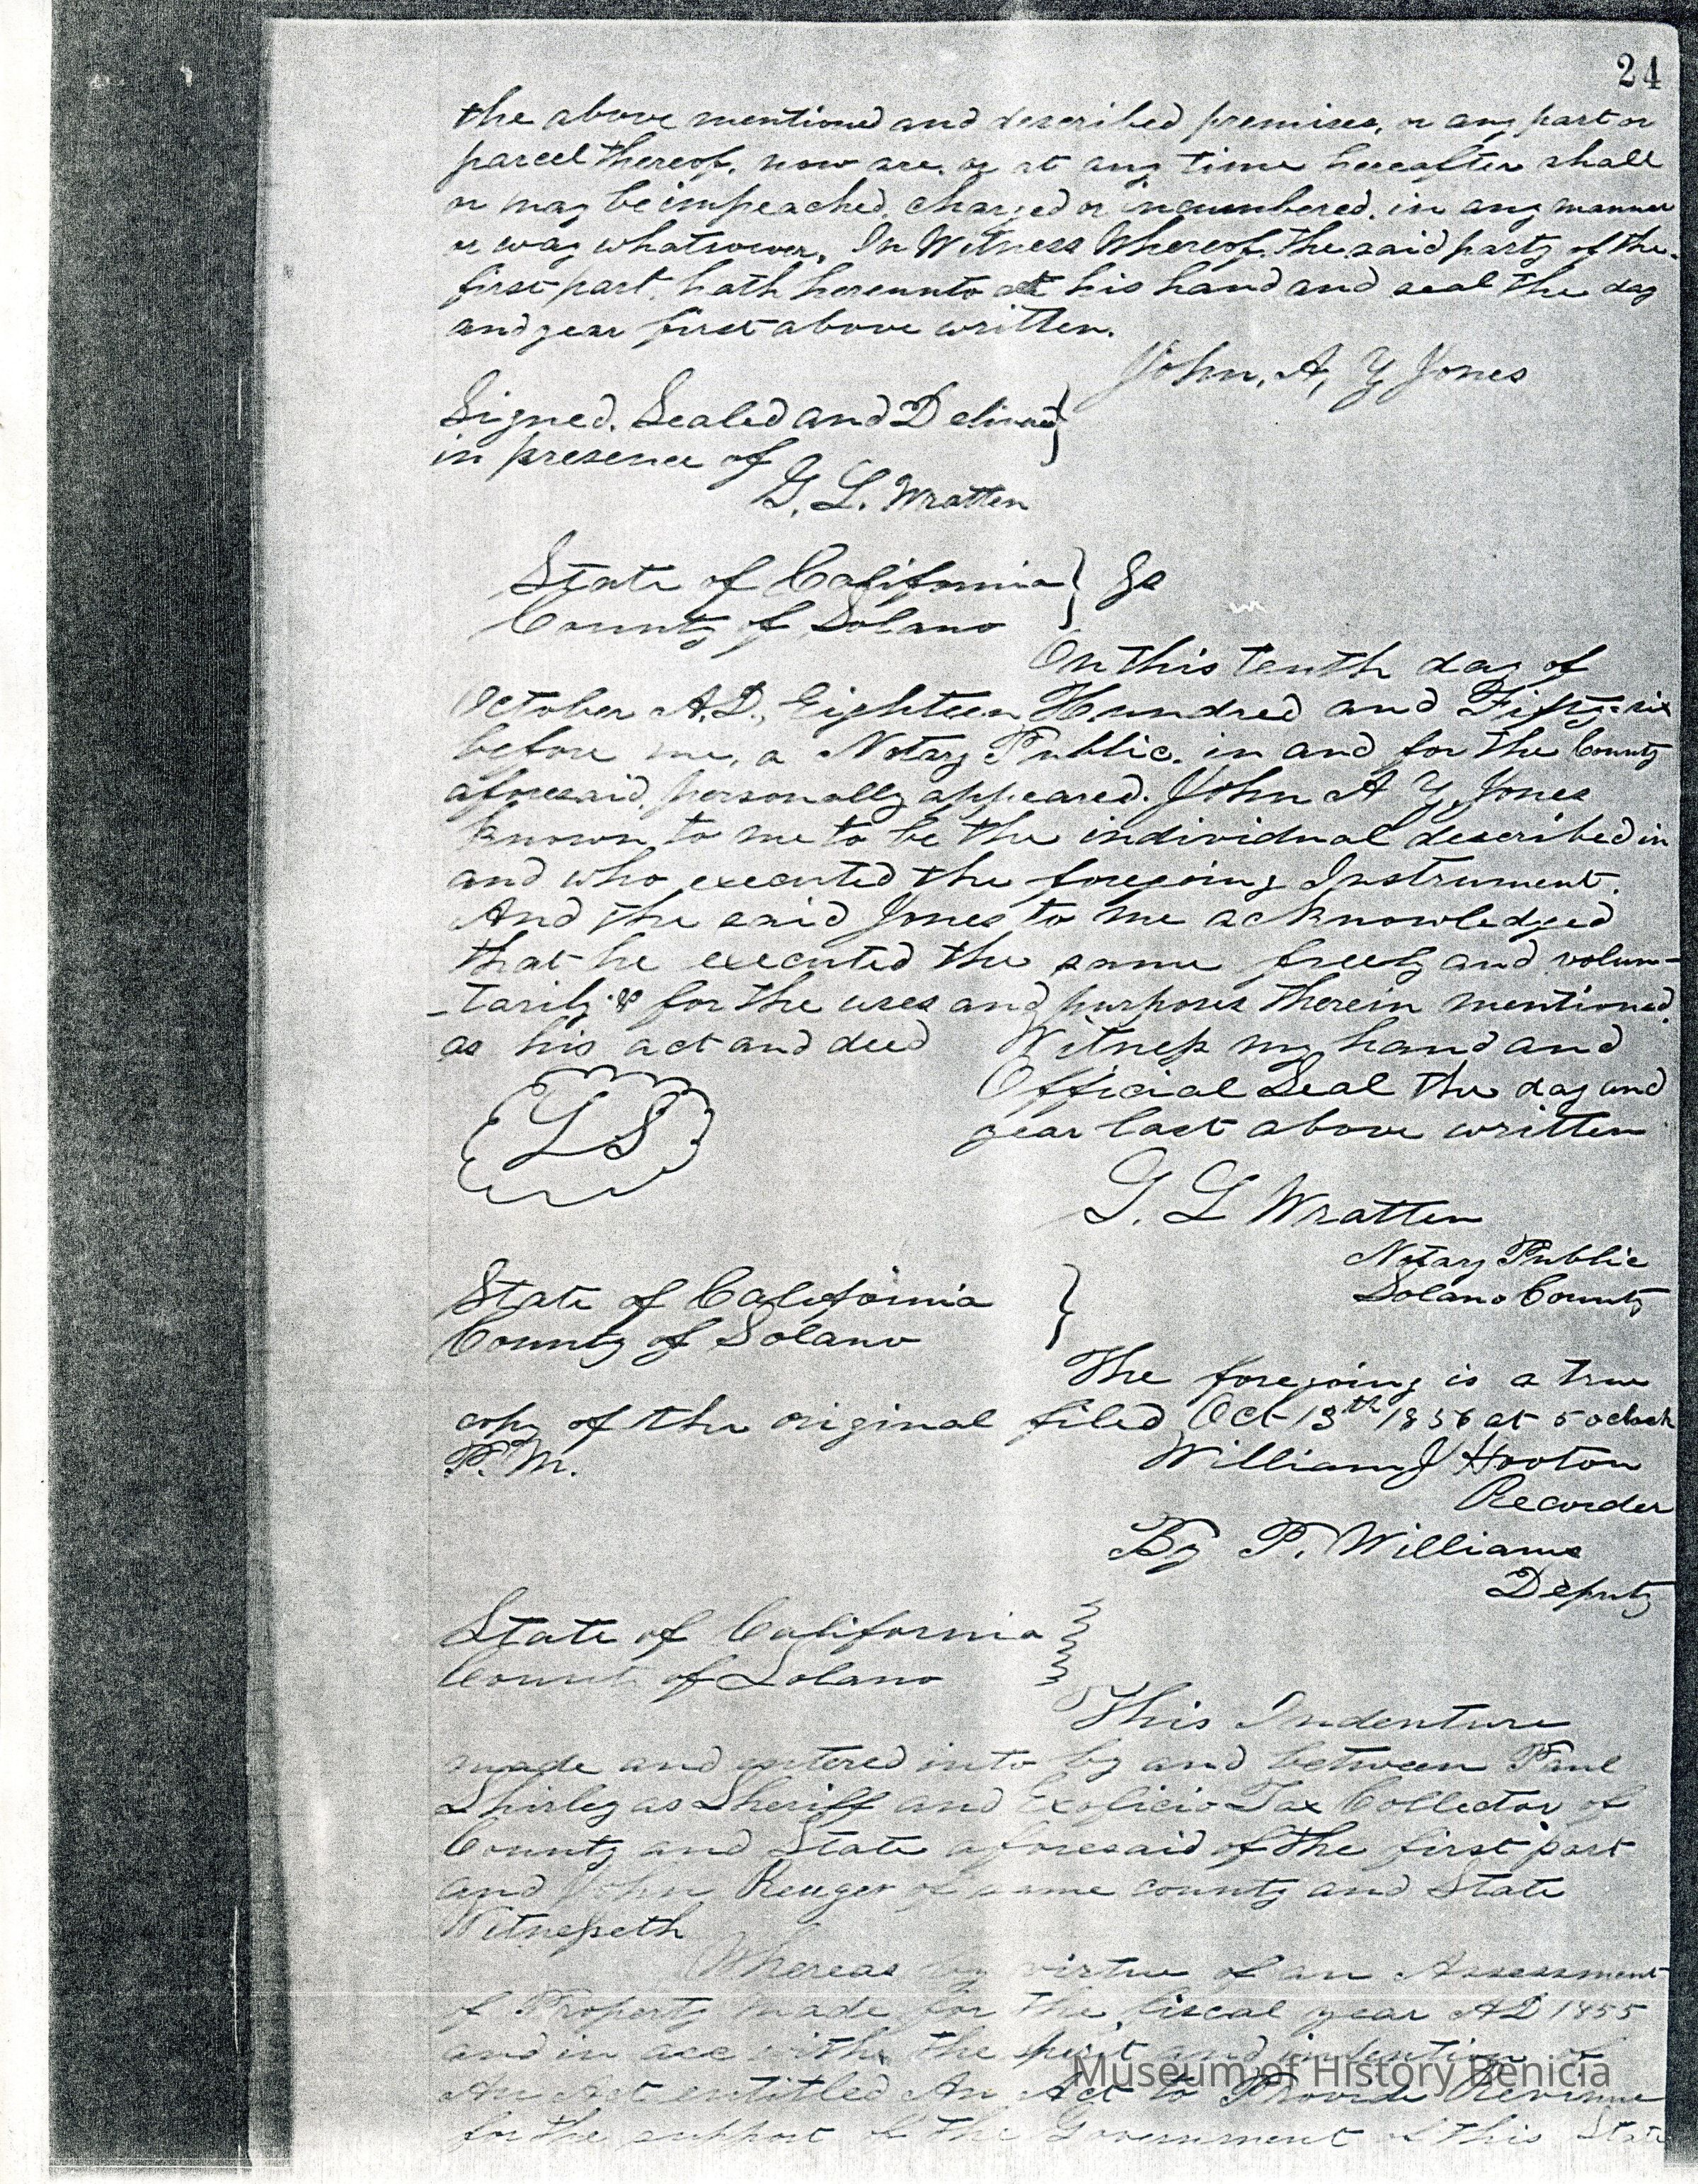 24
the above mentioned and described premises, or any part or
parcel thereof, now are, or at any time hereafter shall
or may be impeached, charged or incumbered, in any manner
or way whatsoever, In Witness Whereof, the said party of the
first part, hath hereunto set his hand and seal the day
and year first above written.
John, A, Y Jones
Signed, Sealed and Delivered }
in presence of
G. L. Wratten
State of California } Ss
County of Solano
On this tenth day of
October A.D., Eighteen Hundred and Fifty-six
before me, a Notary Public, in and for the County
aforesaid, personally appeared, John A Y, Jones
known to me to be the individual described in
and who executed the foregoing Instrument.
And the said Jones to me acknowledged
that he executed the same freely and volun-
-tarily & for the uses and purposes therein mentioned
as his act and deed Witness my hand and
Official Seal the day and
LS
year last above written
G. L Wratten
Notary Public
Solano County
State of California }
County of Solano
The foregoing is a true
copy of the original filed Oct 13th 1856 at 5 oclock
P.M.
William J Hooton
Recorder
By P. Williams
Deputy
State of California
County of Solano
This Indenture
made and entered into by and between Paul
Shirley as Sheriff and Exoficio Tax Collector of
County and State aforesaid of the first part
and John Reuger of same county and State
Witnesseth
Whereas by virtue of an Assessment
of Property made for the fiscal year AD 1855
and in acc with the spirit and intention of
An Act entitled An Act to Provide Revenue
for the support of the Government of this State
Museum of History Benicia